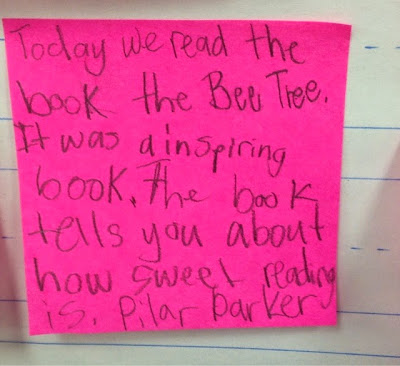 Today we read the
book the Bee Tree.
It was a inspiring
book. The book
tells you about
how sweet reading
is. Pilar Parker